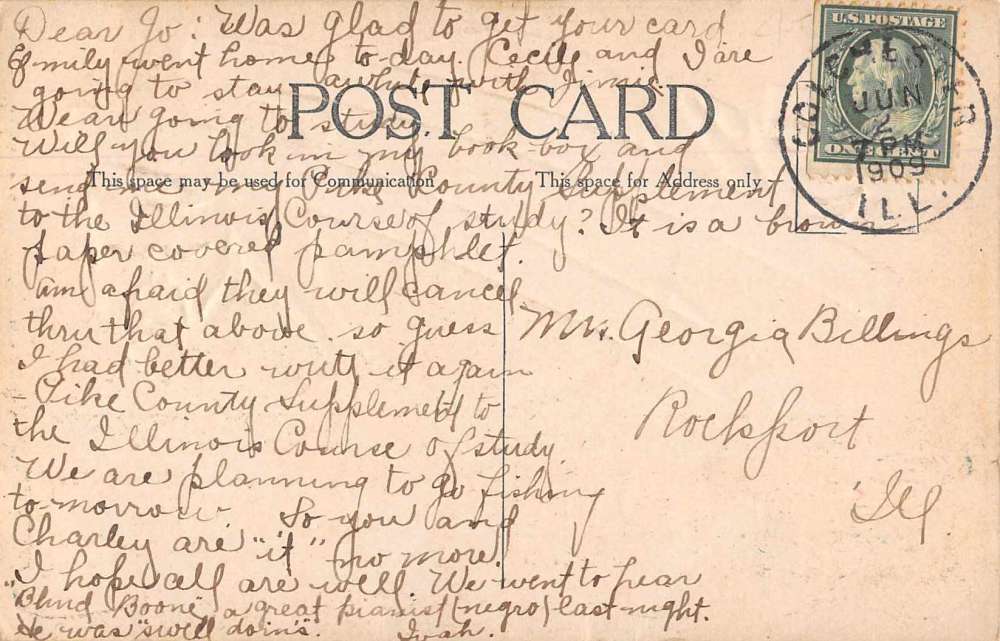 Dear Jo: Was glad to get your card
Emily went home to-day. Cecile and I are
going to stay awhile with Jimie.
We are going to study.
Will you look in my book box and
send me Pike County Supplement
to the Illinois Course of study? It is a brown
paper covered pamphlet.
am afraid they will cancel
thru that above so guess
I had better write it again
- Pike County Supplement to
the Illinois Course of study.
We are planning to go fishing
to-morrow. So you and
Charley are "it" no more.
I hope all are well. We went to hear
"Blind Boone" a great pianist (negro) last night.
He was "swell doins". Ivah.
POST CARD
This space may be used for Communication
This space for Address only
U.S. POSTAGE
ONE CENT
COLCHESTER
JUN
2
7 PM
1909
ILL.
Mrs. Georgia Billings
Rockport
Ill